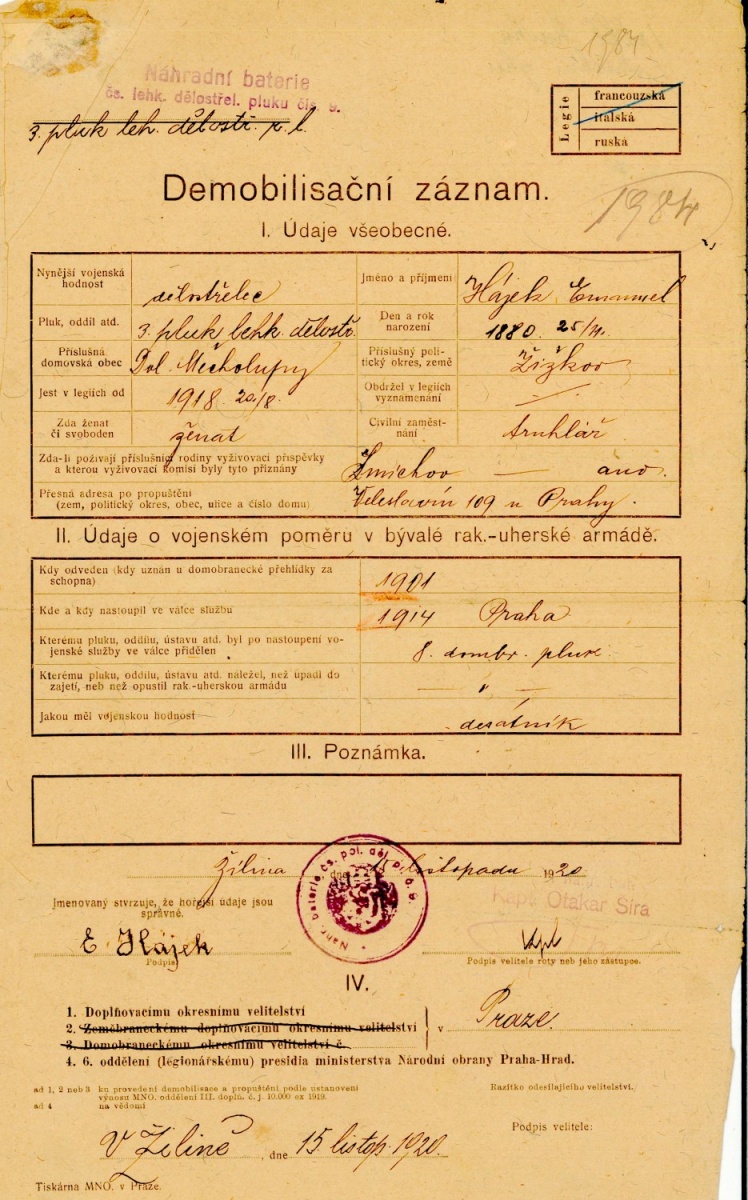 1984
Náhradní baterie
čs. lehk. dělostřel. pluku čís. 9.
3. pluk leh. dělostř. r. l.
Legie
francouzská
italská
ruská
Demobilisační záznam.
1984
I. Údaje všeobecné.
Nynější vojenská hodnost dělostřelec Jméno a příjmení Hájek Emanuel
Pluk, oddíl atd. 3. pluk lehk. dělostř. Den a rok narození 1880. 25/
Příslušná domovská obec Dol. Měcholupy Příslušný politický okres, země Žižkov
Jest v legiích od 1918 20/8. Obdržel v legiích vyznamenání —
Zda ženat či svoboden ženat Civilní zaměstnání truhlář
Zda-li požívají příslušníci rodiny vyživovací příspěvky
a kterou vyživovací komisí byly tyto přiznány Smíchov — ano.
Přesná adresa po propuštění
(zem, politický okres, obec, ulice a číslo domu) Veleslavín 109 u Prahy.
II. Údaje o vojenském poměru v bývalé rak.-uherské armádě.
Kdy odveden (kdy uznán u domobranecké přehlídky za
schopna) 1901
Kde a kdy nastoupil ve válce službu 1914 Praha
Kterému pluku, oddílu, ústavu atd. byl po nastoupení vo-
jenské služby ve válce přidělen 8. dombr. pluk
Kterému pluku, oddílu, ústavu atd. náležel, než upadl do
zajetí, neb než opustil rak.-uherskou armádu — „ —
Jakou měl vojenskou hodnost desátník
III. Poznámka.
Žilina dne 15 listopadu 1920
Jmenovaný stvrzuje, že hořejší údaje jsou
správně.
Kapt. Otakar Síra
E Hájek
Podpis
Podpis velitele roty neb jeho zástupce.
IV.
1. Doplňovacímu okresnímu velitelství
2. Zeměbraneckému doplňovacímu okresnímu velitelství v Praze.
3. Domobraneckému okresnímu velitelství č.
4. 6. oddělení (légionářskému) presidia ministerstva Národní obrany Praha-Hrad.
ad 1, 2 neb 3 ku provedení demobilisace a propuštění podle ustanovení
výnosu MNO. oddělení III. doplň. č. j. 10.000 ex 1919.
ad 4 na vědomí
Razítko odesílajícího velitelství.
Podpis velitele:
V Žilině, dne 15 listop. 1920
Tiskárna MNO. v Praze.